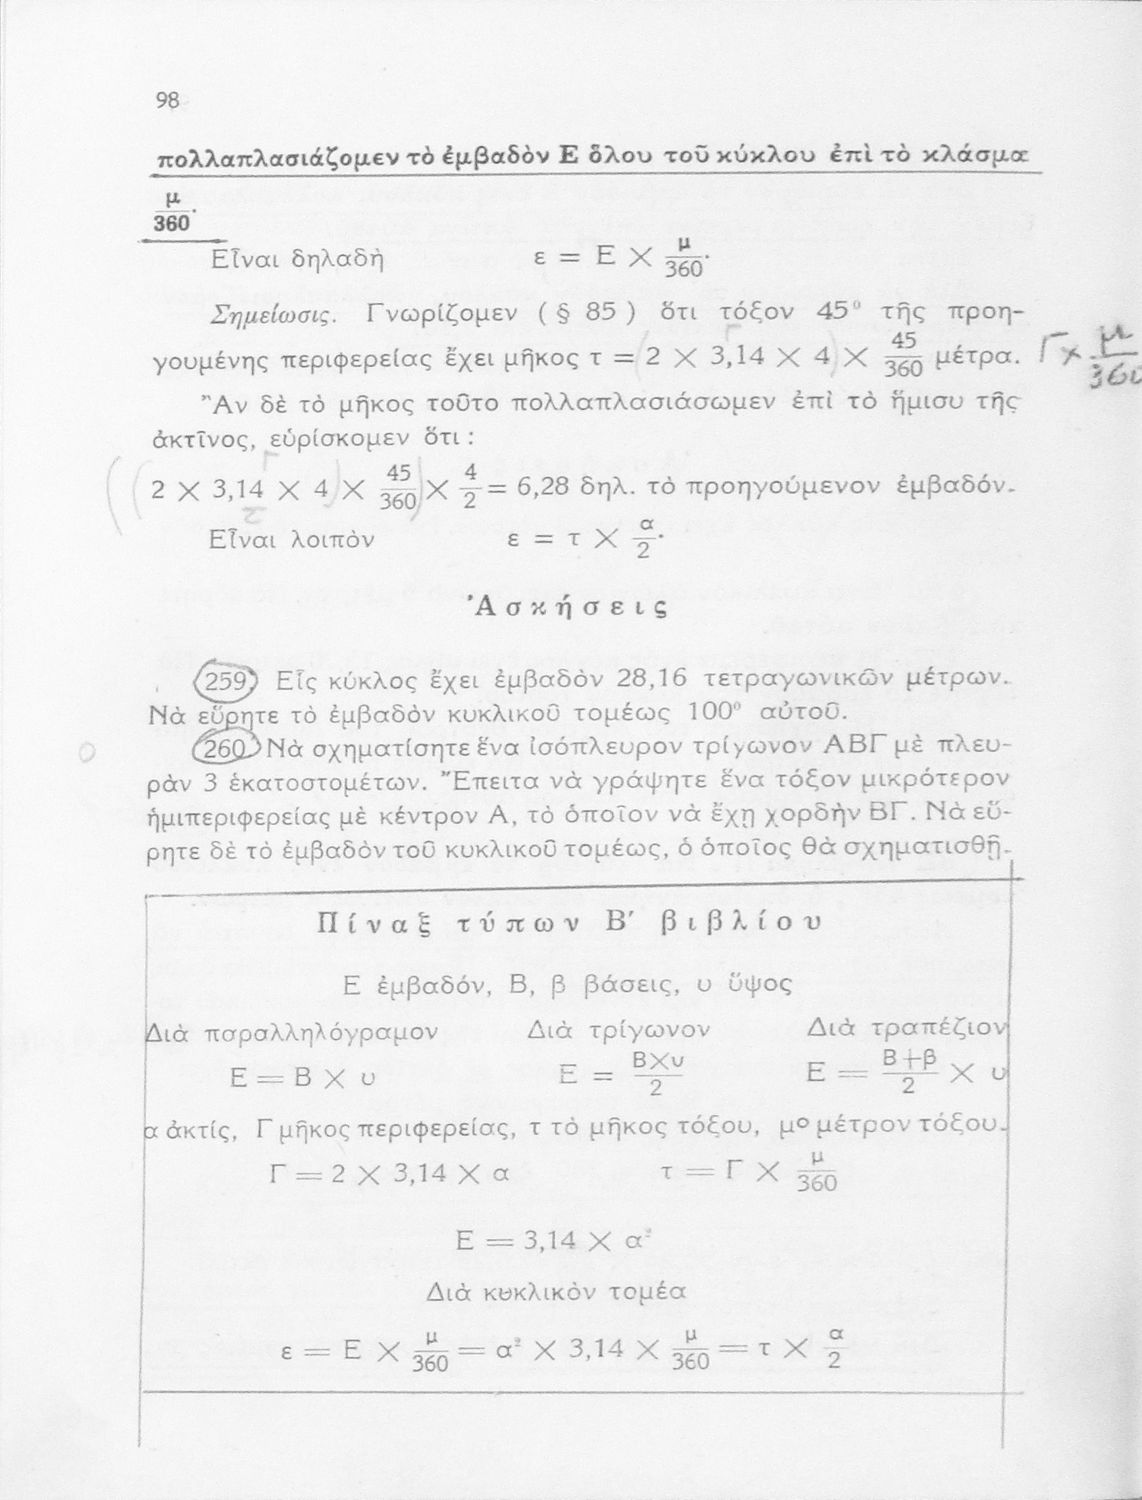 98
πολλαπλασιάζομεν τὸ ἐμβαδὸν Ε ὅλου τοῦ κύκλου ἐπὶ τὸ κλάσμα
μ/360.
Εἶναι δηλαδὴ ε = Ε × μ/360.
Σημείωσις. Γνωρίζομεν ( § 85 ) ὅτι τόξον 45° τῆς προη-
γουμένης περιφερείας ἔχει μῆκος τ = 2 × 3,14 × 4 × 45/360 μέτρα. Γ × μ/360
Ἂν δὲ τὸ μῆκος τοῦτο πολλαπλασιάσωμεν ἐπὶ τὸ ἥμισυ τῆς
ἀκτῖνος, εὑρίσκομεν ὅτι :
2 × 3,14 × 4 × 45/360 × 4/2 = 6,28 δηλ. τὸ προηγούμενον ἐμβαδόν.
Εἶναι λοιπὸν ε = τ × α/2.
Ἀσκήσεις
259 Εἷς κύκλος ἔχει ἐμβαδὸν 28,16 τετραγωνικῶν μέτρων.
Νὰ εὕρητε τὸ ἐμβαδὸν κυκλικοῦ τομέως 100° αὐτοῦ.
260 Νὰ σχηματίσητε ἕνα ἰσόπλευρον τρίγωνον ΑΒΓ μὲ πλευ-
ρὰν 3 ἑκατοστομέτων. Ἔπειτα νὰ γράψητε ἕνα τόξον μικρότερον
ἡμιπεριφερείας μὲ κέντρον Α, τὸ ὁποῖον νὰ ἔχῃ χορδὴν ΒΓ. Νὰ εὕ-
ρητε δὲ τὸ ἐμβαδὸν τοῦ κυκλικοῦ τομέως, ὁ ὁποῖος θὰ σχηματισθῇ.
Πίναξ τύπων Β′ βιβλίου
Ε ἐμβαδόν, Β, β βάσεις, υ ὕψος
Διὰ παραλληλόγραμον Διὰ τρίγωνον Διὰ τραπέζιον
Ε = Β × υ Ε = Β×υ/2 Ε = Β+β/2 × υ
α ἀκτίς, Γ μῆκος περιφερείας, τ τὸ μῆκος τόξου, μ° μέτρον τόξου.
Γ = 2 × 3,14 × α τ = Γ × μ/360
Ε = 3,14 × α²
Διὰ κυκλικὸν τομέα
ε = Ε × μ/360 = α² × 3,14 × μ/360 = τ × α/2